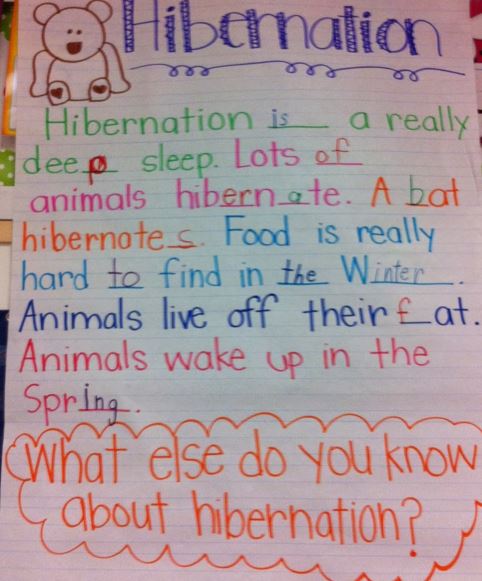 Hibernation
Hibernation is a really
deep sleep. Lots of
animals hibernate. A bat
hibernotes. Food is really
hard to find in the Winter.
Animals live off their fat.
Animals wake up in the
Spring.
What else do you know
about hibernation?